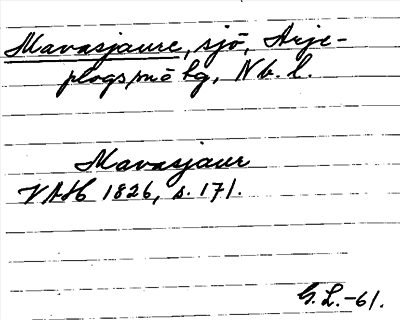 Mavasjaure, sjö, Arje-
plogs sn o tg, Nb. l.
Mavasjaur
VAH 1826, s. 171.
G.L.-61.